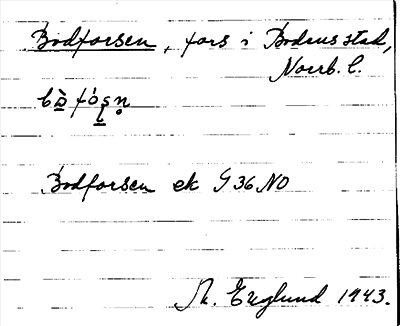 Bodforsen, fors i Bodens stad,
Norrb. l.
bɔ̀fɔ́ʂn̥
Bodforsen ek G 36 NO
M. Englund 1943.